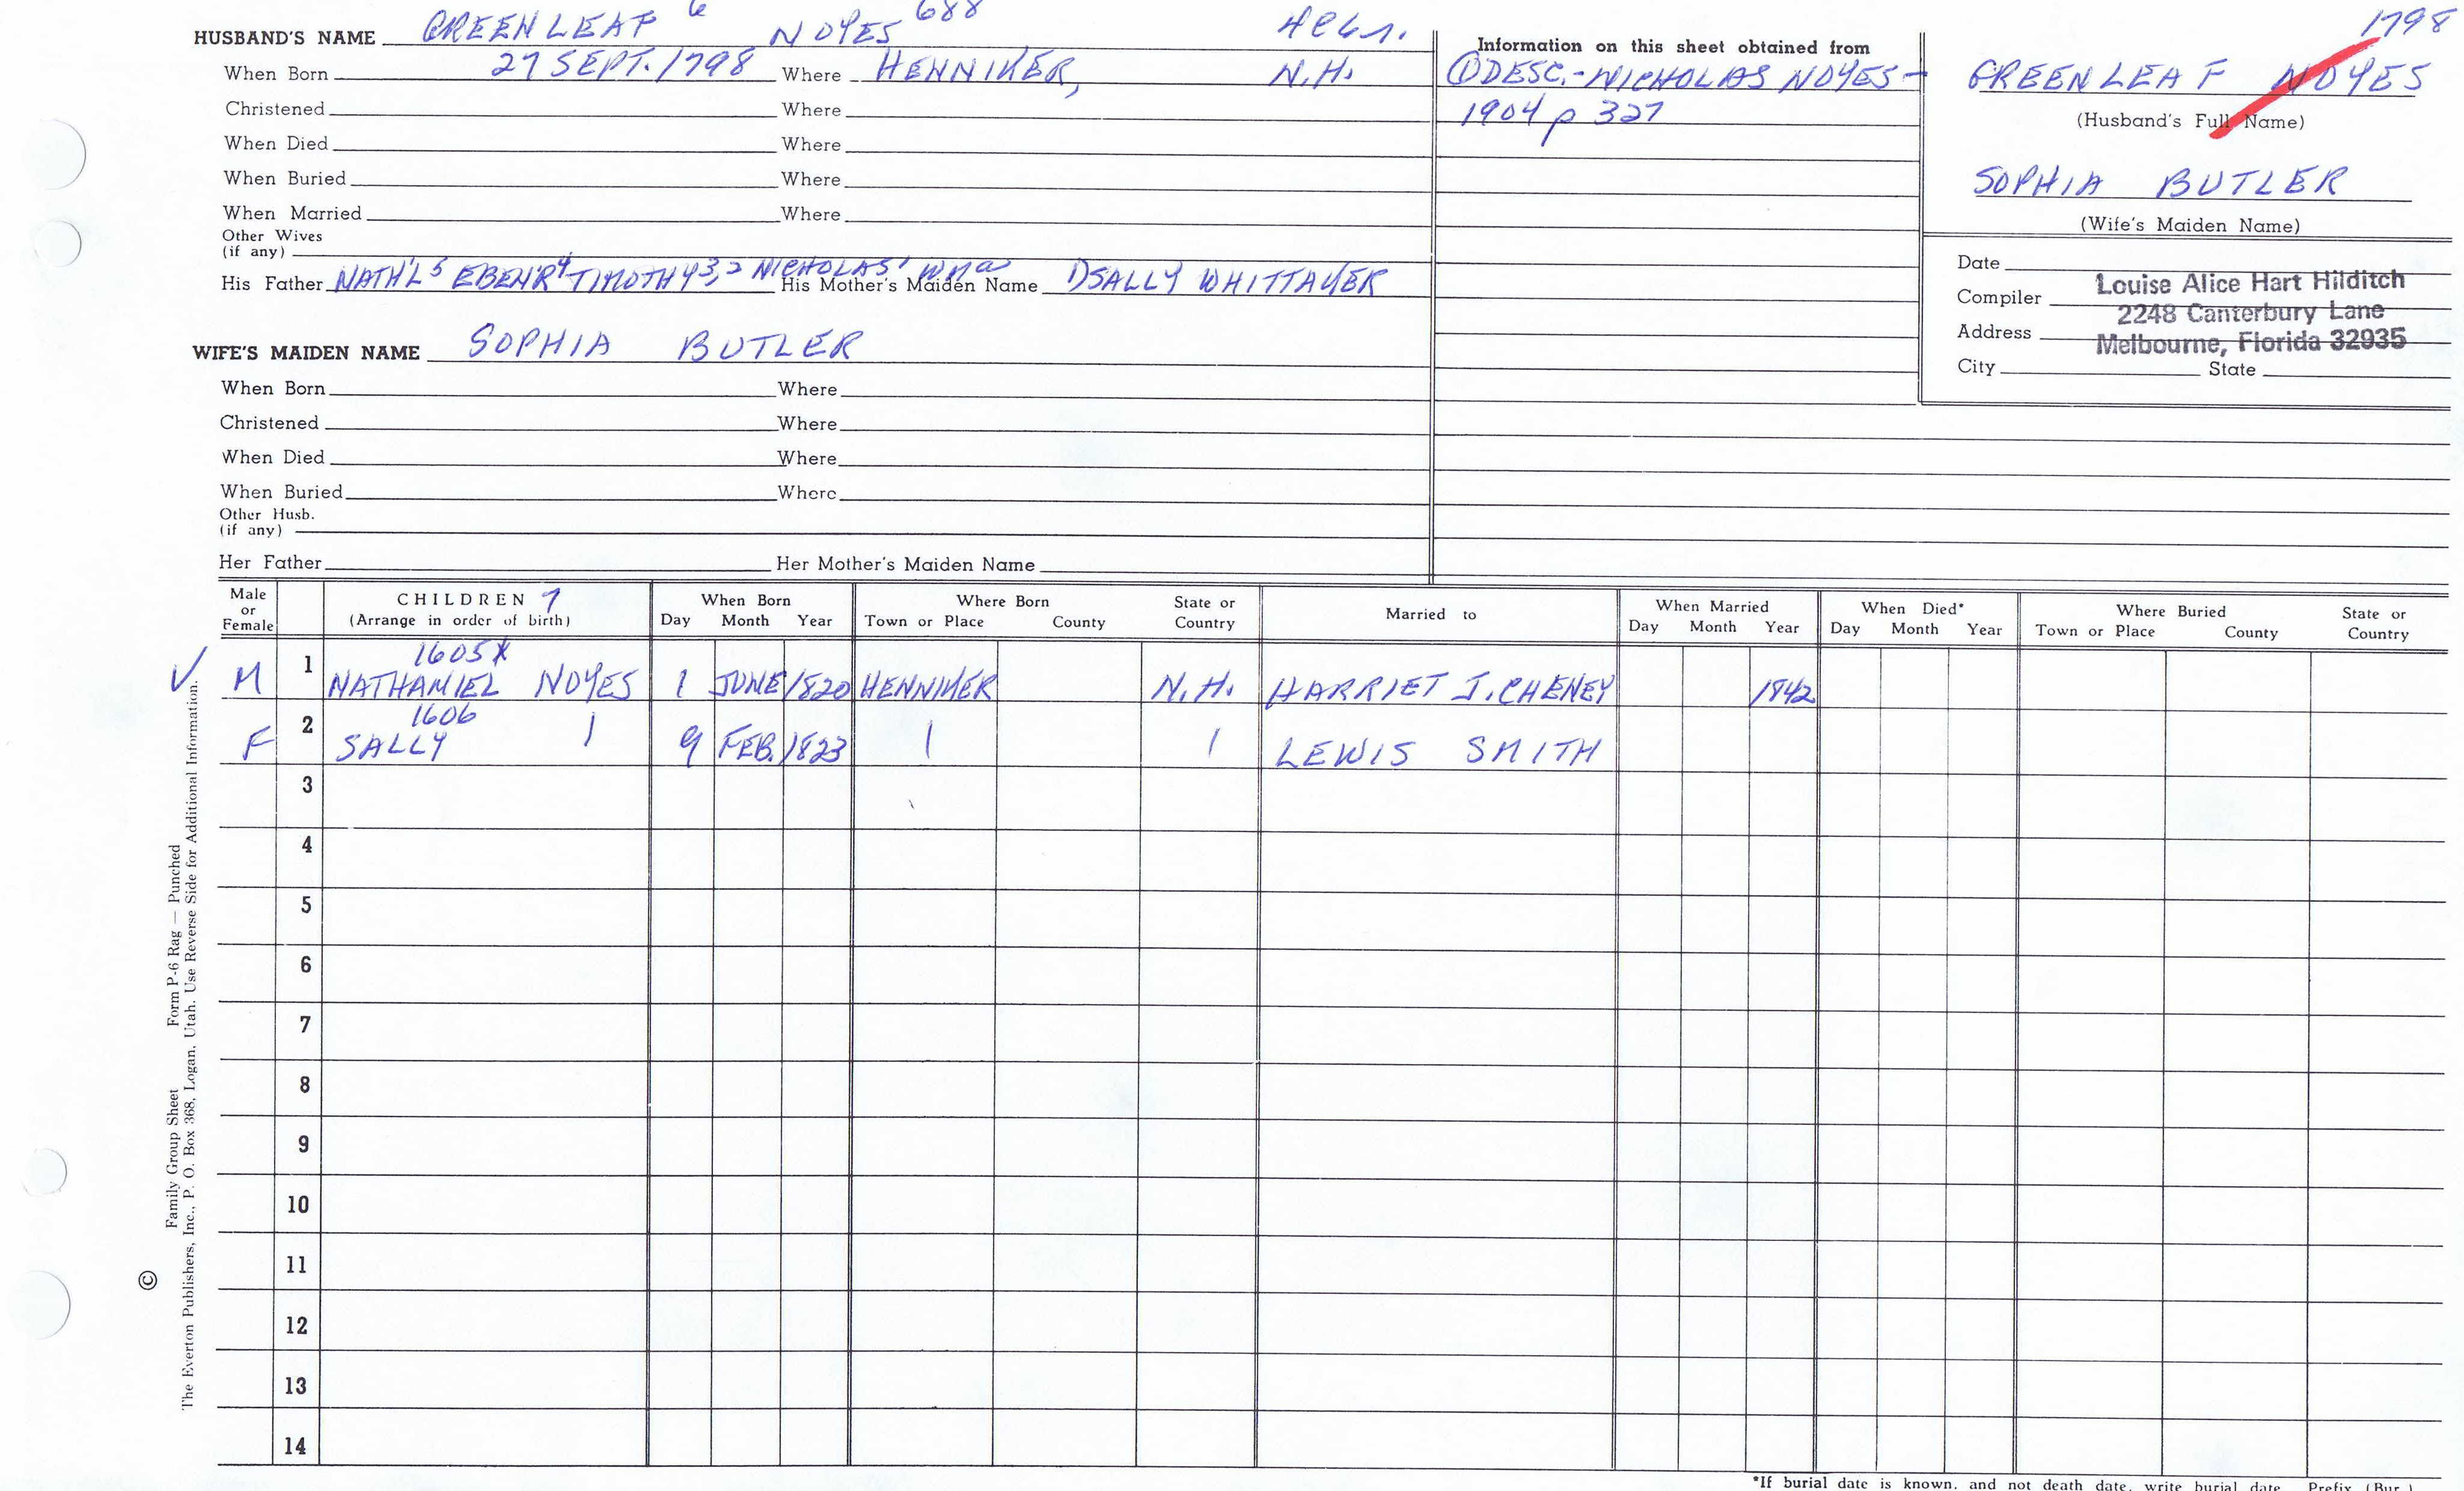 GREENLEAF 6 NOYES 688
HUSBAND'S NAME
When Born 27 SEPT. 1798 Where HENNIKER, N.H.
Christened Where
When Died Where
When Buried Where
When Married Where
Other Wives
(if any)
His Father NATH'L 5 EBEN'R 4 TIMOTHY 3,2 NICHOLAS 1 Wm a His Mother's Maiden Name SALLY WHITTAKER
WIFE'S MAIDEN NAME SOPHIA BUTLER
When Born Where
Christened Where
When Died Where
When Buried Where
Other Husb.
(if any)
Her Father Her Mother's Maiden Name
Information on this sheet obtained from
① DESC.- NICHOLAS NOYES -
1904 p 327
1798
GREENLEAF NOYES
(Husband's Full Name)
SOPHIA BUTLER
(Wife's Maiden Name)
Date
Compiler Louise Alice Hart Hilditch
2248 Canterbury Lane
Address Melbourne, Florida 32935
City State
Male or Female CHILDREN 7 (Arrange in order of birth) When Born Day Month Year Where Born Town or Place County State or Country Married to When Married Day Month Year When Died* Day Month Year Where Buried Town or Place County State or Country
1605X
√ M 1 NATHANIEL NOYES 1 JUNE 1820 HENNIKER N.H. HARRIET J. CHENEY 1842
1606
F 2 SALLY 1 9 FEB. 1823 1 1 LEWIS SMITH
3
4
5
6
7
8
9
10
11
12
13
14
*If burial date is known, and not death date, write burial date
Family Group Sheet Form P-6 Rag — Punched
© The Everton Publishers, Inc., P. O. Box 368, Logan, Utah. Use Reverse Side for Additional Information.